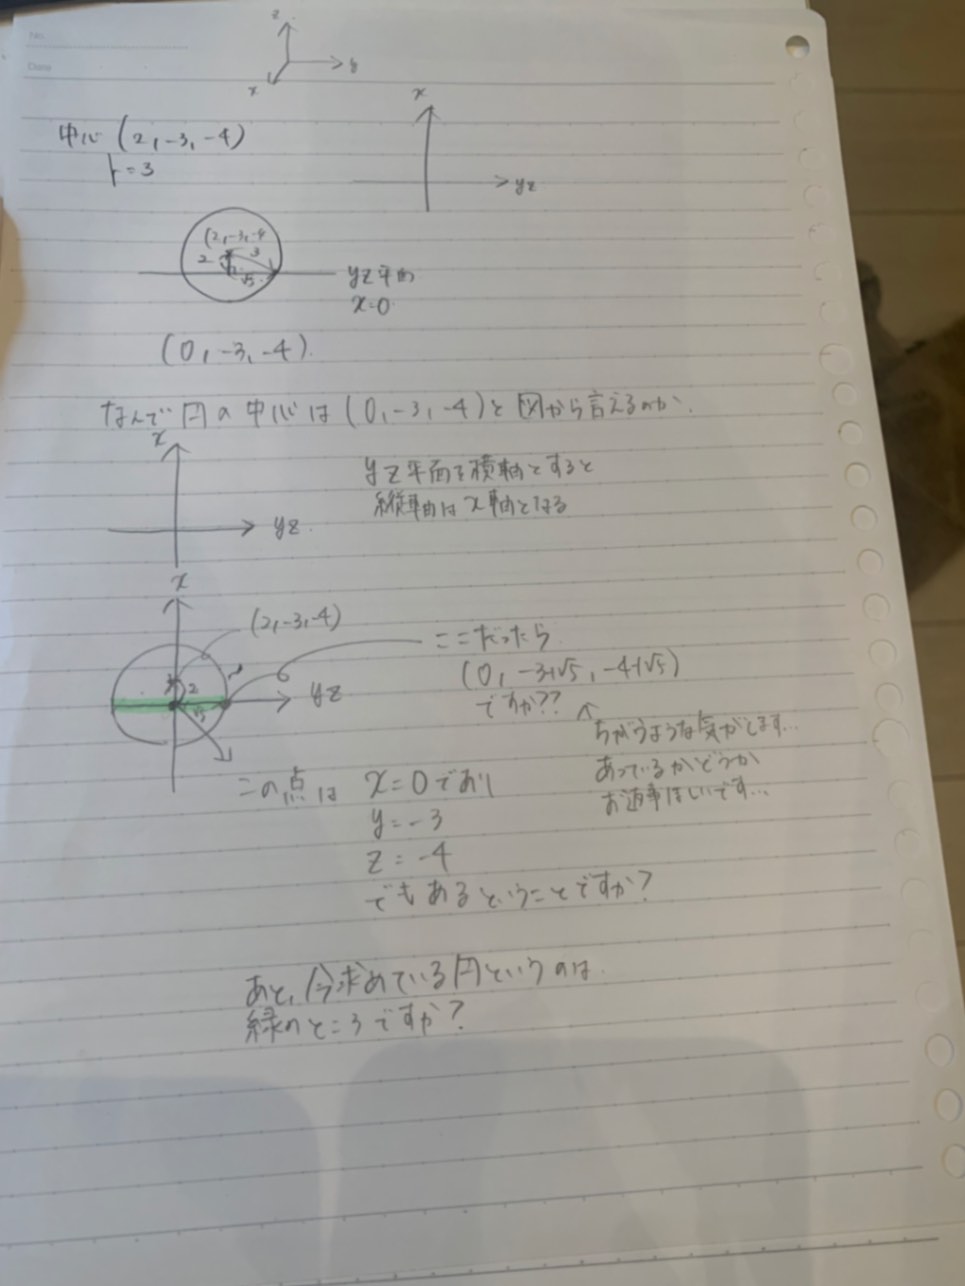 No.
Date
z
y
x
x
中心 (2, -3, -4)
r = 3
yz
(2, -3, -4
2
3
√5
yz平面
x=0
(0, -3, -4).
なんで 円の 中心は (0, -3, -4)と 図から言えるのか.
x
yz平面を横軸とすると
縦軸は x軸となる
yz
x
(2, -3, -4)
ここだったら
(0, -3+√5, -4+√5)
ですか??
2
√5
yz
ちがうような気がします…
あっているかどうか
お返事ほしいです…
この点は x=0であり
y=-3
z=-4
でもあるということですか?
あと、今求めている円というのは
緑のところですか?